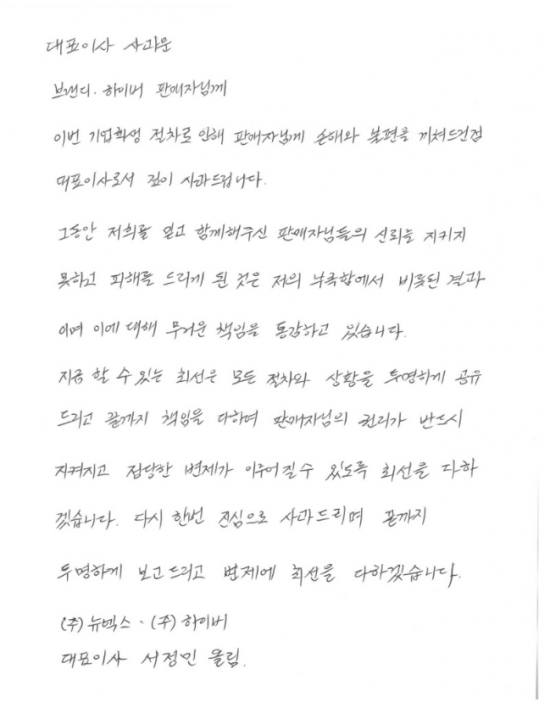 대표이사 사과문
브랜디·하이버 판매자님께
이번 기업회생 절차로 인해 판매자님께 손해와 불편을 끼쳐드린점
대표이사로서 깊이 사과드립니다.
그동안 저희를 믿고 함께해주신 판매자님들의 신뢰를 지키지
못하고 피해를 드리게 된 것은 저의 부족함에서 비롯된 결과
이며 이에 대해 무거운 책임을 통감하고 있습니다.
지금 할 수 있는 최선은 모든 절차와 상황을 투명하게 공유
드리고 끝까지 책임을 다하며 판매자님의 권리가 반드시
지켜지고 정당한 변제가 이루어질 수 있도록 최선을 다하
겠습니다. 다시 한번 진심으로 사과드리며 끝까지
투명하게 보고드리고 변제에 최선을 다하겠습니다.
(주)뉴넥스·(주)하이버
대표이사 서정민 올림.